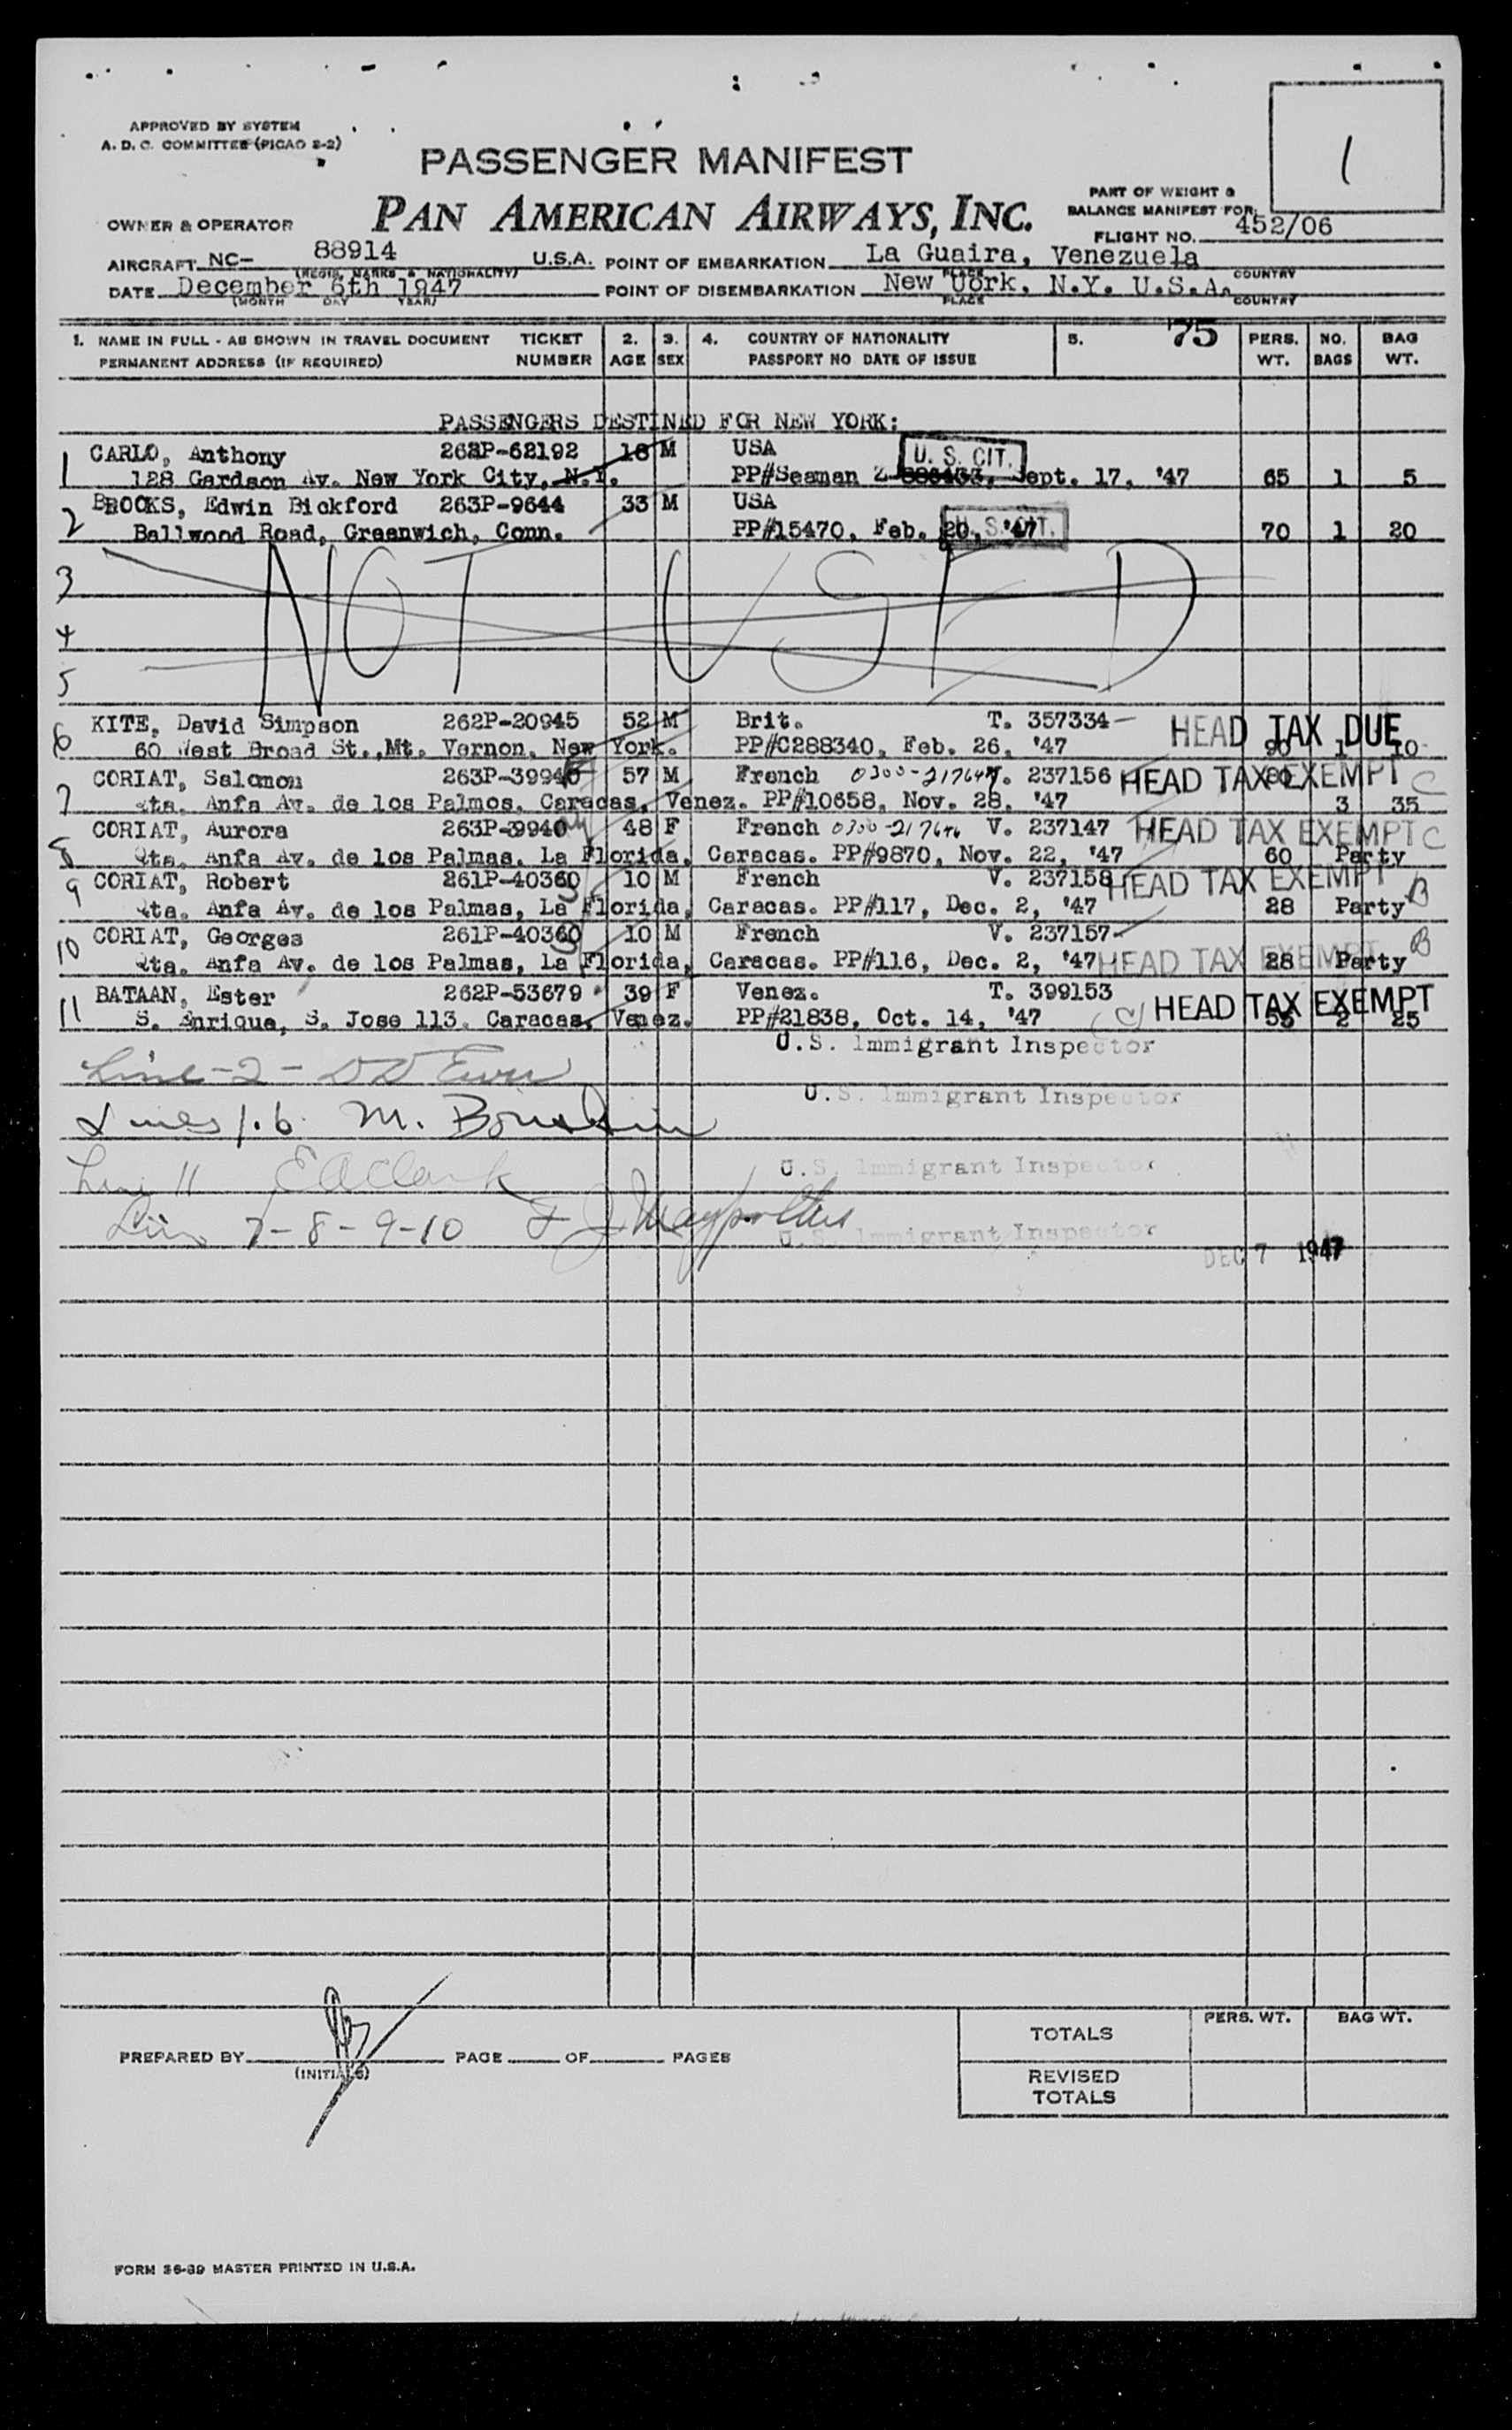 1
APPROVED BY SYSTEM
A. D. C. COMMITTEE (PICAO 2-2)
PASSENGER MANIFEST
PAN AMERICAN AIRWAYS, INC.
PART OF WEIGHT &
BALANCE MANIFEST FOR
FLIGHT NO. 452/06
OWNER & OPERATOR
AIRCRAFT NC- 88914 U.S.A. POINT OF EMBARKATION La Guaira, Venezuela
(REGIS. MARKS & NATIONALITY) PLACE COUNTRY
DATE December 6th 1947 POINT OF DISEMBARKATION New Uork, N.Y. U.S.A.
(MONTH DAY YEAR) PLACE COUNTRY
1. NAME IN FULL - AS SHOWN IN TRAVEL DOCUMENT TICKET 2. 3. 4. COUNTRY OF NATIONALITY 5. 75 PERS. NO. BAG
PERMANENT ADDRESS (IF REQUIRED) NUMBER AGE SEX PASSPORT NO DATE OF ISSUE WT. BAGS WT.
PASSENGERS DESTINED FOR NEW YORK:
1 CARLO, Anthony 262P-62192 18 M USA U. S. CIT.
128 Gardson Av. New York City, N.Y. PP#Seaman Sept. 17, '47 65 1 5
2 BROOKS, Edwin Bickford 263P-9644 33 M USA
Ballwood Road, Greenwich, Conn. PP#15470, Feb. 20, '47 U. S. CIT. 70 1 20
3 NOT USED
4
5
6 KITE, David Simpson 262P-20945 52 M Brit. T. 357334 HEAD TAX DUE
60 West Broad St., Mt. Vernon, New York. PP#C288340, Feb. 26, '47 90 1 10
7 CORIAT, Salomon 263P-39940 57 M French T. 237156 HEAD TAX EXEMPT C
Qta. Anfa Av. de los Palmos, Caracas, Venez. PP#10658, Nov. 28, '47 3 35
8 CORIAT, Aurora 263P-39940 48 F French 0300-217646 V. 237147 HEAD TAX EXEMPT C
Qta. Anfa Av. de los Palmas, La Florida, Caracas. PP#9870, Nov. 22, '47 60 Party
9 CORIAT, Robert 261P-40360 10 M French V. 237158 HEAD TAX EXEMPT B
Qta. Anfa Av. de los Palmas, La Florida, Caracas. PP#117, Dec. 2, '47 28 Party
10 CORIAT, Georges 261P-40360 10 M French V. 237157 B
Qta. Anfa Av. de los Palmas, La Florida, Caracas. PP#116, Dec. 2, '47 HEAD TAX EXEMPT 28 Party
11 BATAAN, Ester 262P-53679 39 F Venez. T. 399153 C HEAD TAX EXEMPT
S. Enrique, S. Jose 113. Caracas, Venez. PP#21838, Oct. 14, '47 55 2 25
U.S. Immigrant Inspector
Line-2-
U.S. Immigrant Inspector
Lines 1.6. M.
U.S. Immigrant Inspector
Line 11 EAClark
Line 7-8-9-10
U.S. Immigrant Inspector
DEC 7 1947
PREPARED BY (INITIALS) PAGE OF PAGES
TOTALS PERS. WT. BAG WT.
REVISED
TOTALS
FORM 36-39 MASTER PRINTED IN U.S.A.